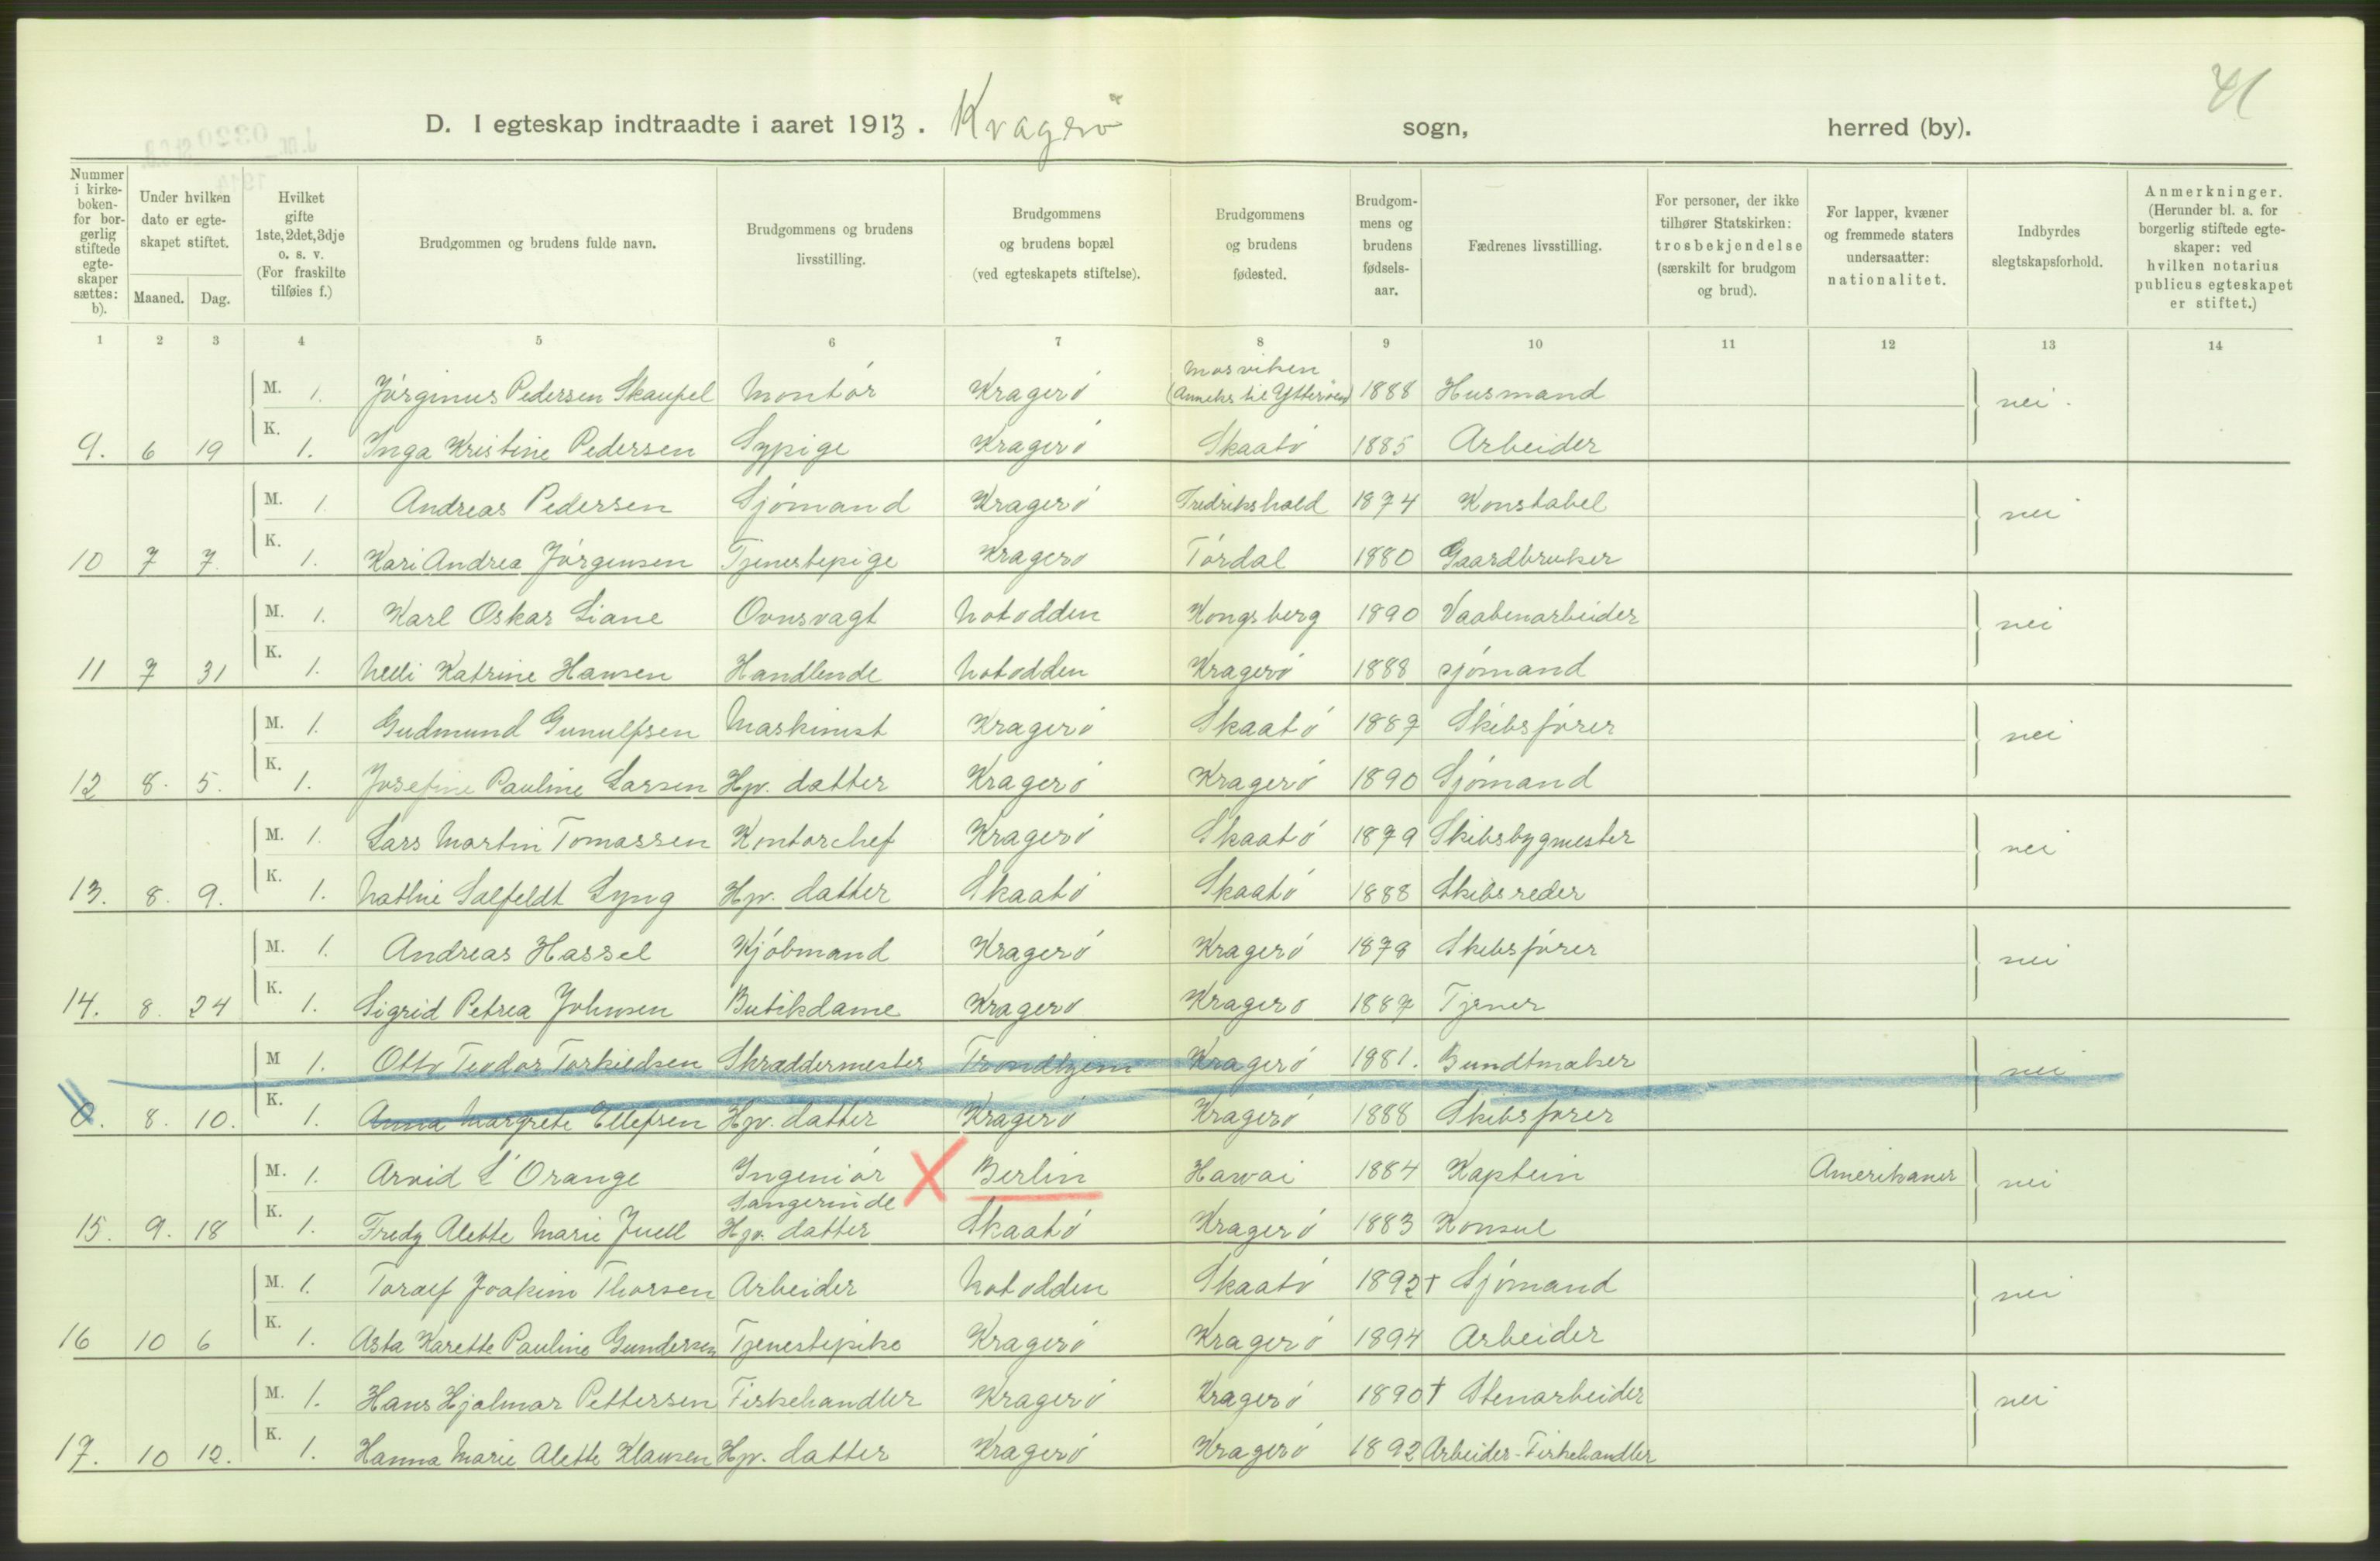 41
D. I egteskap indtraadte i aaret 1913. Kragerø sogn, herred (by).
Nummer i kirkeboken- for borgerlig stiftede egteskaper sættes: b).
Under hvilken dato er egteskapet stiftet.
Maaned. Dag.
Hvilket gifte 1ste, 2det, 3dje o. s. v. (For fraskilte tilføies f.)
Brudgommen og brudens fulde navn.
Brudgommens og brudens livsstilling.
Brudgommens og brudens bopæl (ved egteskapets stiftelse).
Brudgommens og brudens fødested.
Brudgommens og brudens fødselsaar.
Fædrenes livsstilling.
For personer, der ikke tilhører Statskirken: trosbekjendelse (særskilt for brudgom og brud).
For lapper, kvæner og fremmede staters undersaatter: nationalitet.
Indbyrdes slegtskapsforhold.
Anmerkninger. (Herunder bl. a. for borgerlig stiftede egteskaper: ved hvilken notarius publicus egteskapet er stiftet.)
1 2 3 4 5 6 7 8 9 10 11 12 13 14
M. 1. Jørginus Pedersen Skaufel Montør Kragerø Mosviken (Anneks til Ytterøen) 1888 Husmand nei.
9. 6 19 K. 1. Inga Kristine Pedersen Sypige Kragerø Skaatø 1885 Arbeider
M. 1. Andreas Pedersen Sjømand Kragerø Fredrikshald 1874 Konstabel nei
10 7 7. K. 1. Kari Andrea Jørgensen Tjenestepige Kragerø Tørdal 1880 Gaardbruker
M. 1. Karl Oskar Liane Ovnsvagt Notodden Kongsberg 1890 Vaabenarbeider nei
11 7 31 K. 1. Nelli Katrine Hansen Handlende Notodden Kragerø 1888 sjømand
M. 1. Gudmund Gunulfsen Maskinist Kragerø Skaatø 1887 Skibsfører nei
12 8. 5. K. 1. Josefine Pauline Larsen Hjv. datter Kragerø Kragerø 1890 Sjømand
M. 1. Lars Martin Tomassen Kontorchef Kragerø Skaatø 1879 Skibsbygmester nei
13. 8. 9. K. 1. Nathie Salfeldt Lyng Hjv. datter Skaatø Skaatø 1888 Skibsreder
M. 1. Andreas Hassel Kjøbmand Kragerø Kragerø 1878 Skibsfører nei
14. 8. 24 K. 1. Sigrid Petrea Johnsen Butikdame Kragerø Kragerø 1887 Tjener
M 1. Otto Teodor Torkildsen Skræddermester Trondhjem Kragerø 1881. Bundtmaker nei
0. 8. 10. K. 1. Anna Margrete Ellefsen Hjv. datter Kragerø Kragerø 1888 Skibsfører
M. 1. Arvid L'Orange Ingeniør Berlin Hawai 1884 Kaptein Amerikaner nei
Sangerinde
15. 9. 18 K. 1. Fredy Alette Marie Juell Hjv. datter Skaatø Kragerø 1883 Konsul
M. 1. Toralf Joakim Thorsen Arbeider Notodden Skaatø 1892 † Sjømand nei
16 10 6 K. 1. Asta Karette Pauline Gundersen Tjenestepike Kragerø Kragerø 1894 Arbeider
M. 1. Hans Hjalmar Pettersen Fiskehandler Kragerø Kragerø 1890 † Stenarbeider nei
17. 10 12. K. 1. Hanna Marie Alette Klausen Hjv. datter Kragerø Kragerø 1892 Arbeider-Fiskehandler